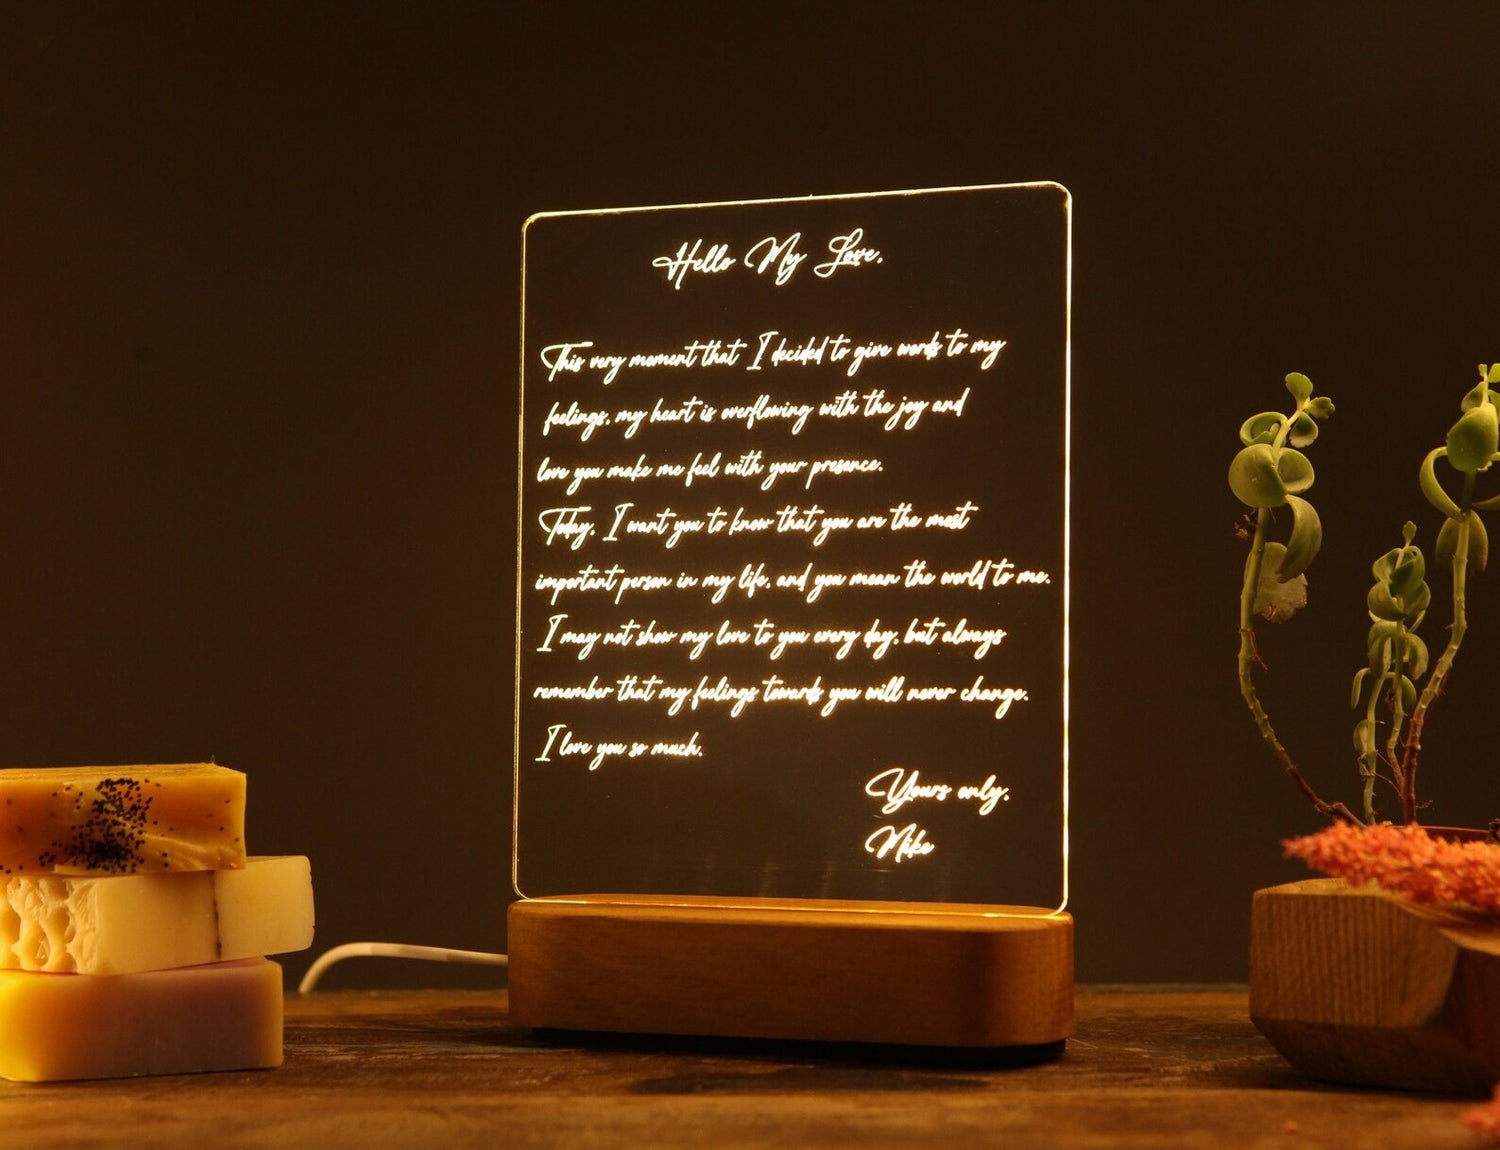 Hello My Love,
This very moment that I decided to give words to my
feelings, my heart is overflowing with the joy and
love you make me feel with your presence.
Today, I want you to know that you are the most
important person in my life, and you mean the world to me.
I may not show my love to you every day, but always
remember that my feelings towards you will never change.
I love you so much.
Yours only,
Mike